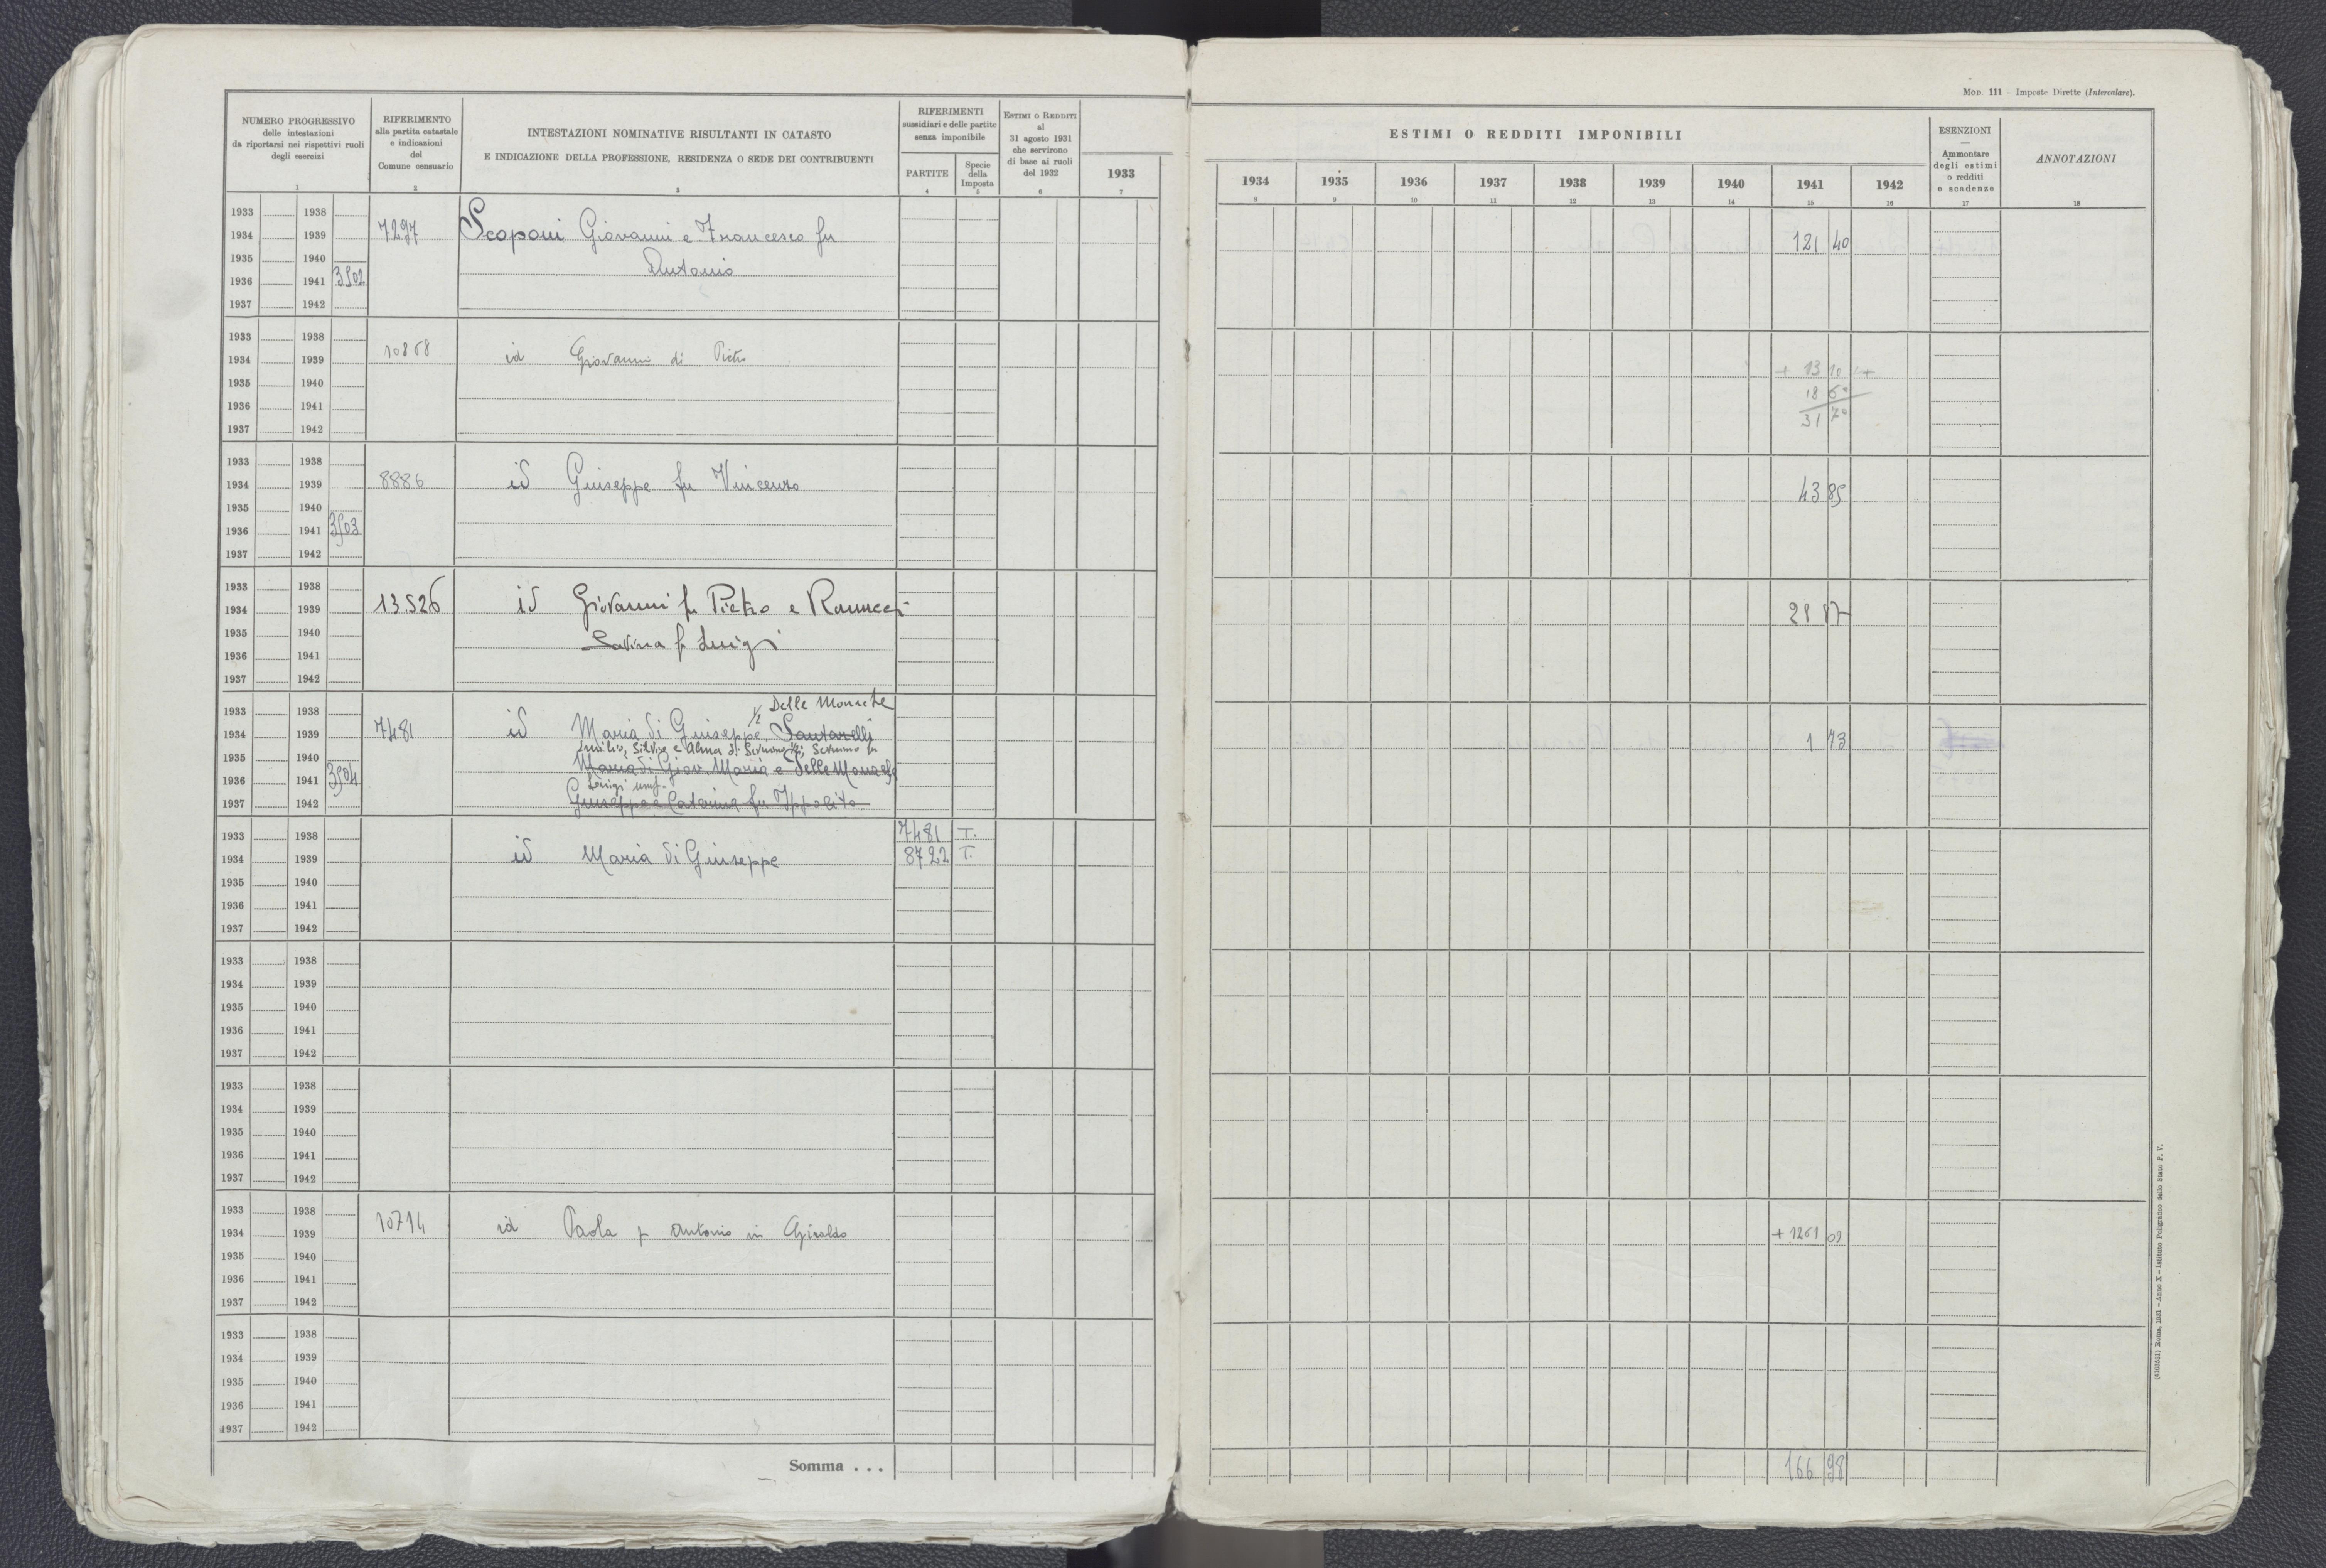 Mod. 111 – Imposte Dirette (Intercalare).
NUMERO PROGRESSIVO
delle intestazioni
da riportarsi nei rispettivi ruoli
degli esercizi
1
RIFERIMENTO
alla partita catastale
e indicazioni
del
Comune censuario
2
INTESTAZIONI NOMINATIVE RISULTANTI IN CATASTO
E INDICAZIONE DELLA PROFESSIONE, RESIDENZA O SEDE DEI CONTRIBUENTI
3
RIFERIMENTI
sussidiari e delle partite
senza imponibile
PARTITE
4
Specie
della
Imposta
5
Estimi o Redditi
al
31 agosto 1931
che servirono
di base ai ruoli
del 1932
6
1933
7
ESTIMI O REDDITI IMPONIBILI
1934 1935 1936 1937 1938 1939 1940 1941 1942
8 9 10 11 12 13 14 15 16
ESENZIONI
—
Ammontare
degli estimi
o redditi
e scadenze
17
ANNOTAZIONI
18
1933 1938
1934 1939 7297 Scoponi Giovanni e Francesco fu 121 40
1935 1940 Antonio
1936 1941 3502
1937 1942
1933 1938
1934 1939 10868 id Giovanni di Pietro + 13 10
1935 1940 18 60
1936 1941 31 70
1937 1942
1933 1938
1934 1939 8886 id Giuseppe fu Vincenzo 43 85
1935 1940
1936 1941 3503
1937 1942
1933 1938
1934 1939 13.526 id Giovanni fu Pietro e Ranucci 21 87
1935 1940 Lavina fu Luigi
1936 1941
1937 1942
1933 1938 1/2 Delle Monache
1934 1939 7481 id Maria di Giuseppe, Santarelli 1 73
Silvia e Alma di
1935 1940 Maria di Giov. Maria e Delle Monache
1936 1941 3504
Luigi usuf.
1937 1942 Giuseppe e Caterina fu Ippolito
1933 1938 7481 T.
1934 1939 id Maria di Giuseppe 8722 T.
1935 1940
1936 1941
1937 1942
1933 1938
1934 1939
1935 1940
1936 1941
1937 1942
1933 1938
1934 1939
1935 1940
1936 1941
1937 1942
1933 1938
1934 1939 10714 id Paola fu Antonio in Giraldo + 1261 09
1935 1940
1936 1941
1937 1942
1933 1938
1934 1939
1935 1940
1936 1941
1937 1942
Somma . . . 166 98
Roma, 1931 – Anno X – Istituto Poligrafico dello Stato P. V.